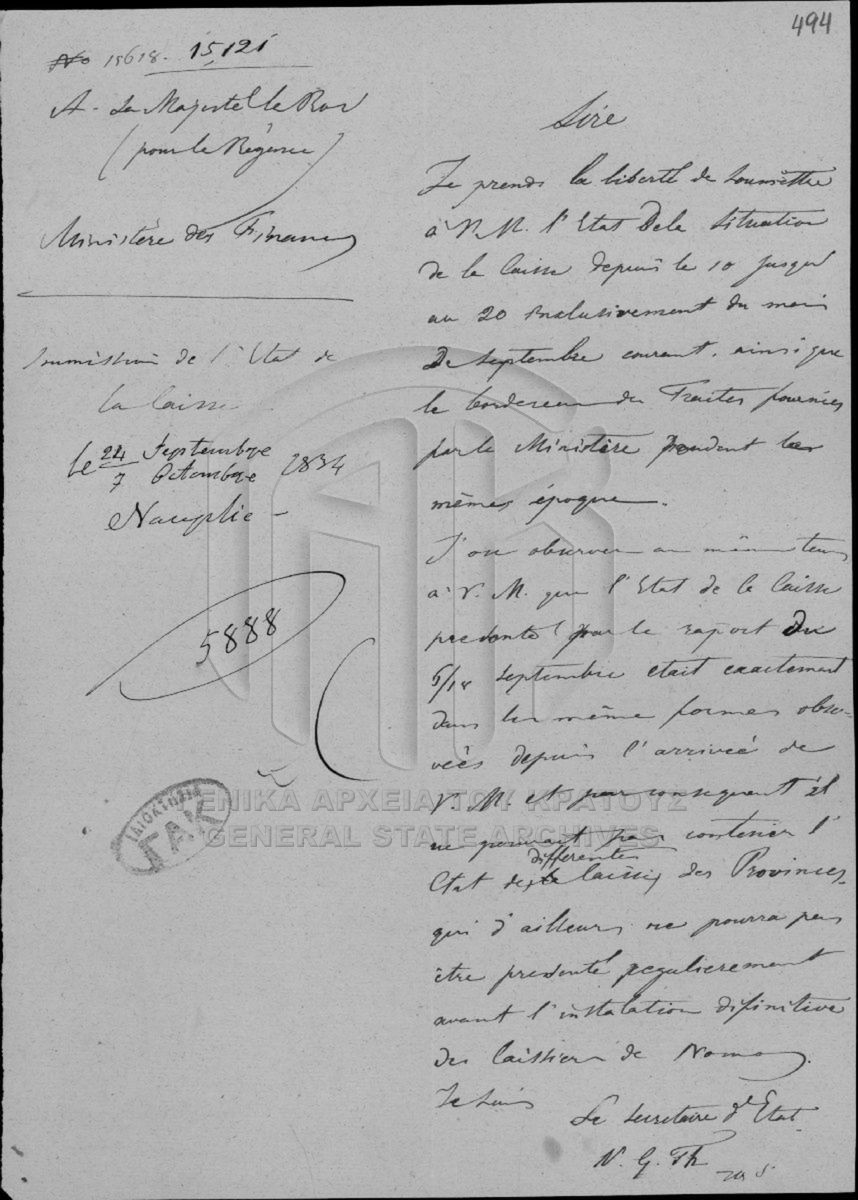 494
No 15618. 15,121
A Sa Majesté le Roi
(pour le Régence)
Ministère des Finances
Soumission de l'Etat de
la Caisse
le 24/7 Septembre/Octombre 1834
Nauplie
5888
Sire
Je prends la liberté de soumettre
à V. M. l'Etat De la Situation
de la Caisse depuis le 10 jusqu'
au 20 inclusivement du mois
De Septembre courant, ainsi que
le bordereau des Traites fournies
par le Ministère pendant les
mêmes époque.
J'ose observer en même tems
à V. M. que l'Etat de la Caisse
presenté par le raport Du
6/18 Septembre etait exactement
dans les même formes obser-
veés depuis l'arriveé de
V. M. et par consequent il
ne pouvait pas contenir l'
Etat des differentes Caisses des Provinces,
qui d'ailleurs ne pourra pas
être presenté regulierement
avant l'instalation difinitive
des Caissiers de Nomos.
Je suis
Le Secretaire d'Etat
N. G. Th
ΙΔΙΟΚΤΗΣΙΑ
ΓΑΚ
ΓΕΝΙΚΑ ΑΡΧΕΙΑ ΤΟΥ ΚΡΑΤΟΥΣ
GENERAL STATE ARCHIVES